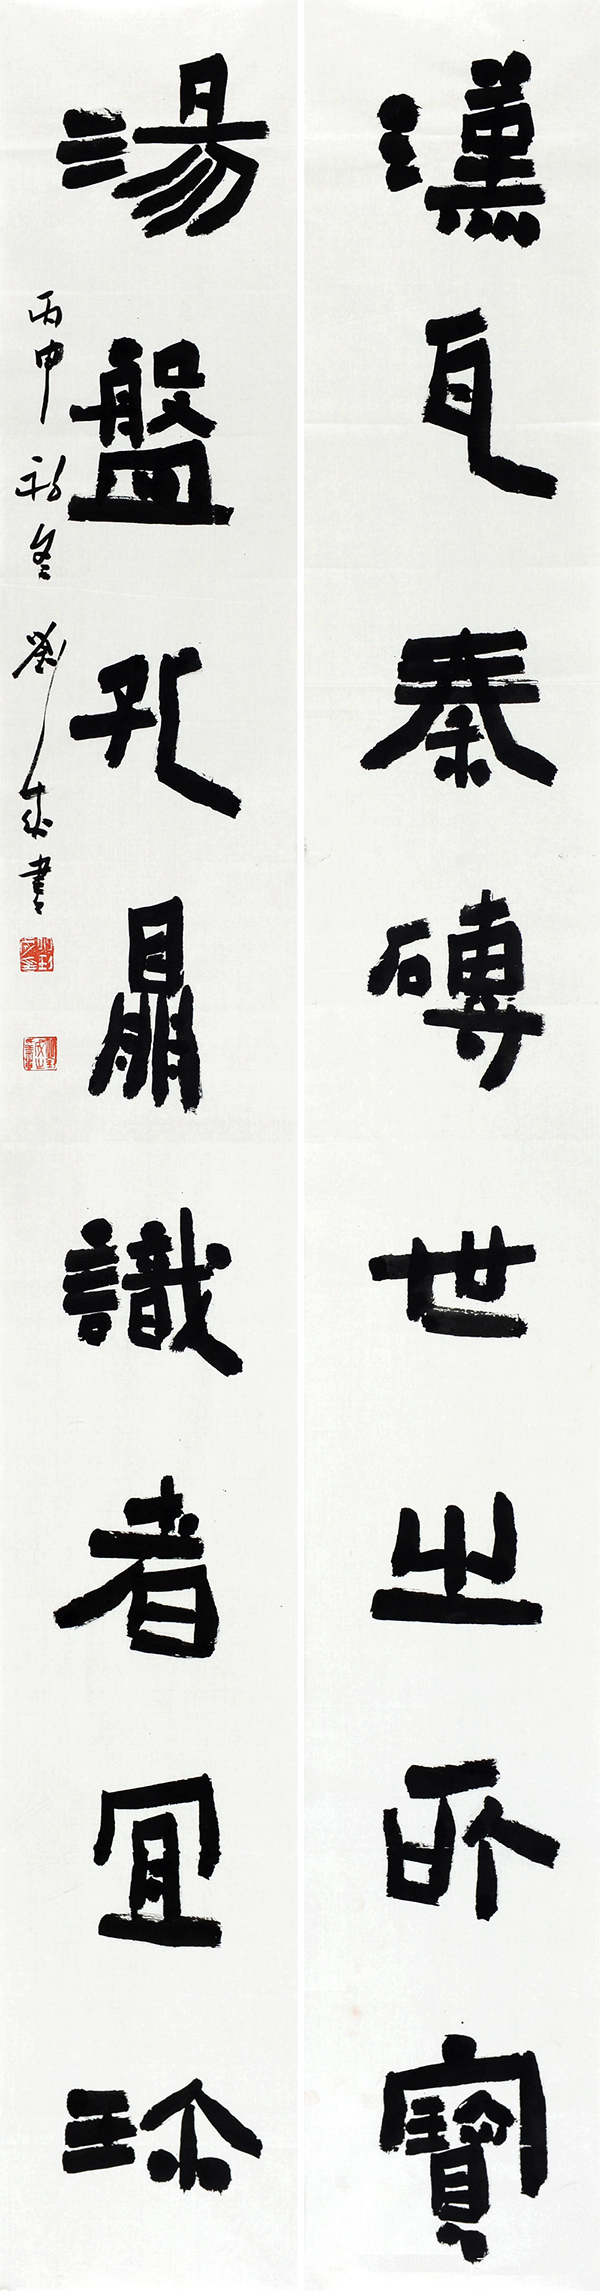 漢瓦秦磚世之所寶
湯盤孔鼎識者宜珍
丙申初冬劉成書